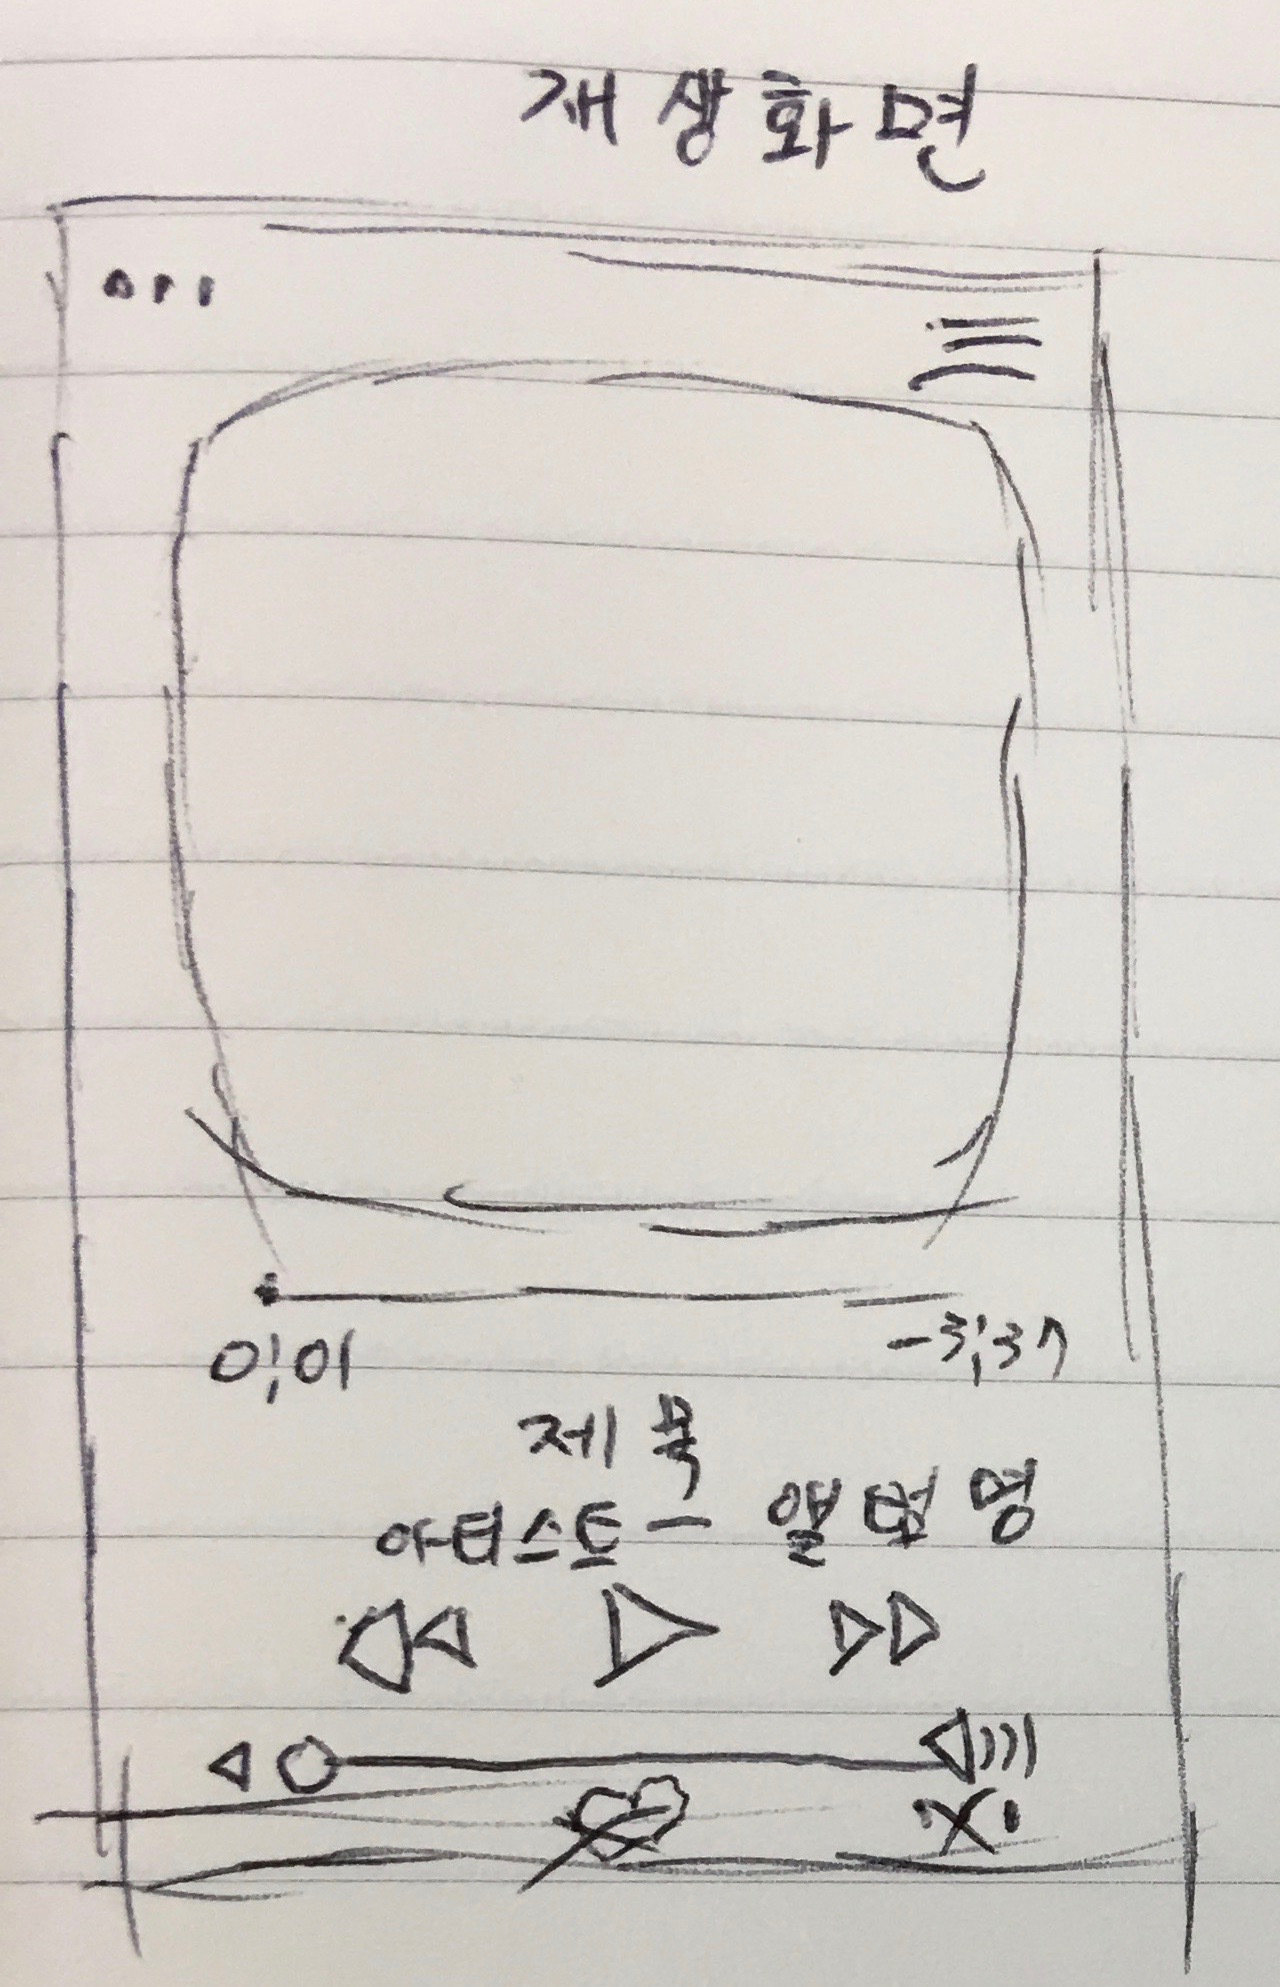 재생화면
0:01 -3:37
제목
아티스트 - 앨범명